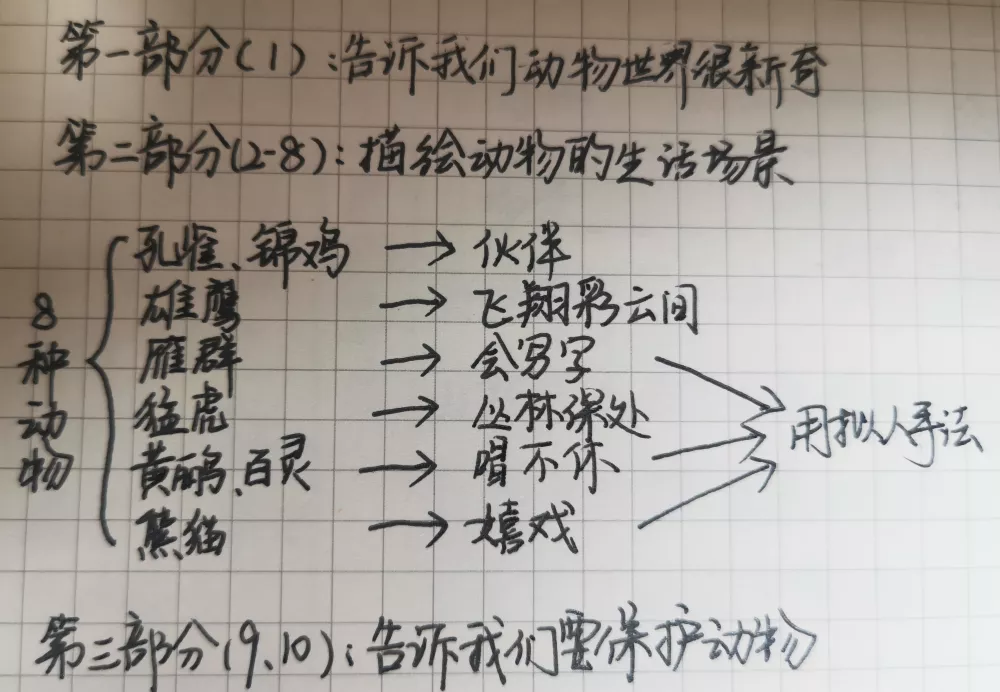 第一部分(1):告诉我们动物世界很新奇
第二部分(2-8):描绘动物的生活场景
8种动物
孔雀、锦鸡 → 伙伴
雄鹰 → 飞翔彩云间
雁群 → 会写字
猛虎 → 丛林深处
黄鹂、百灵 → 唱不休
熊猫 → 嬉戏
用拟人手法
第三部分(9、10):告诉我们要保护动物